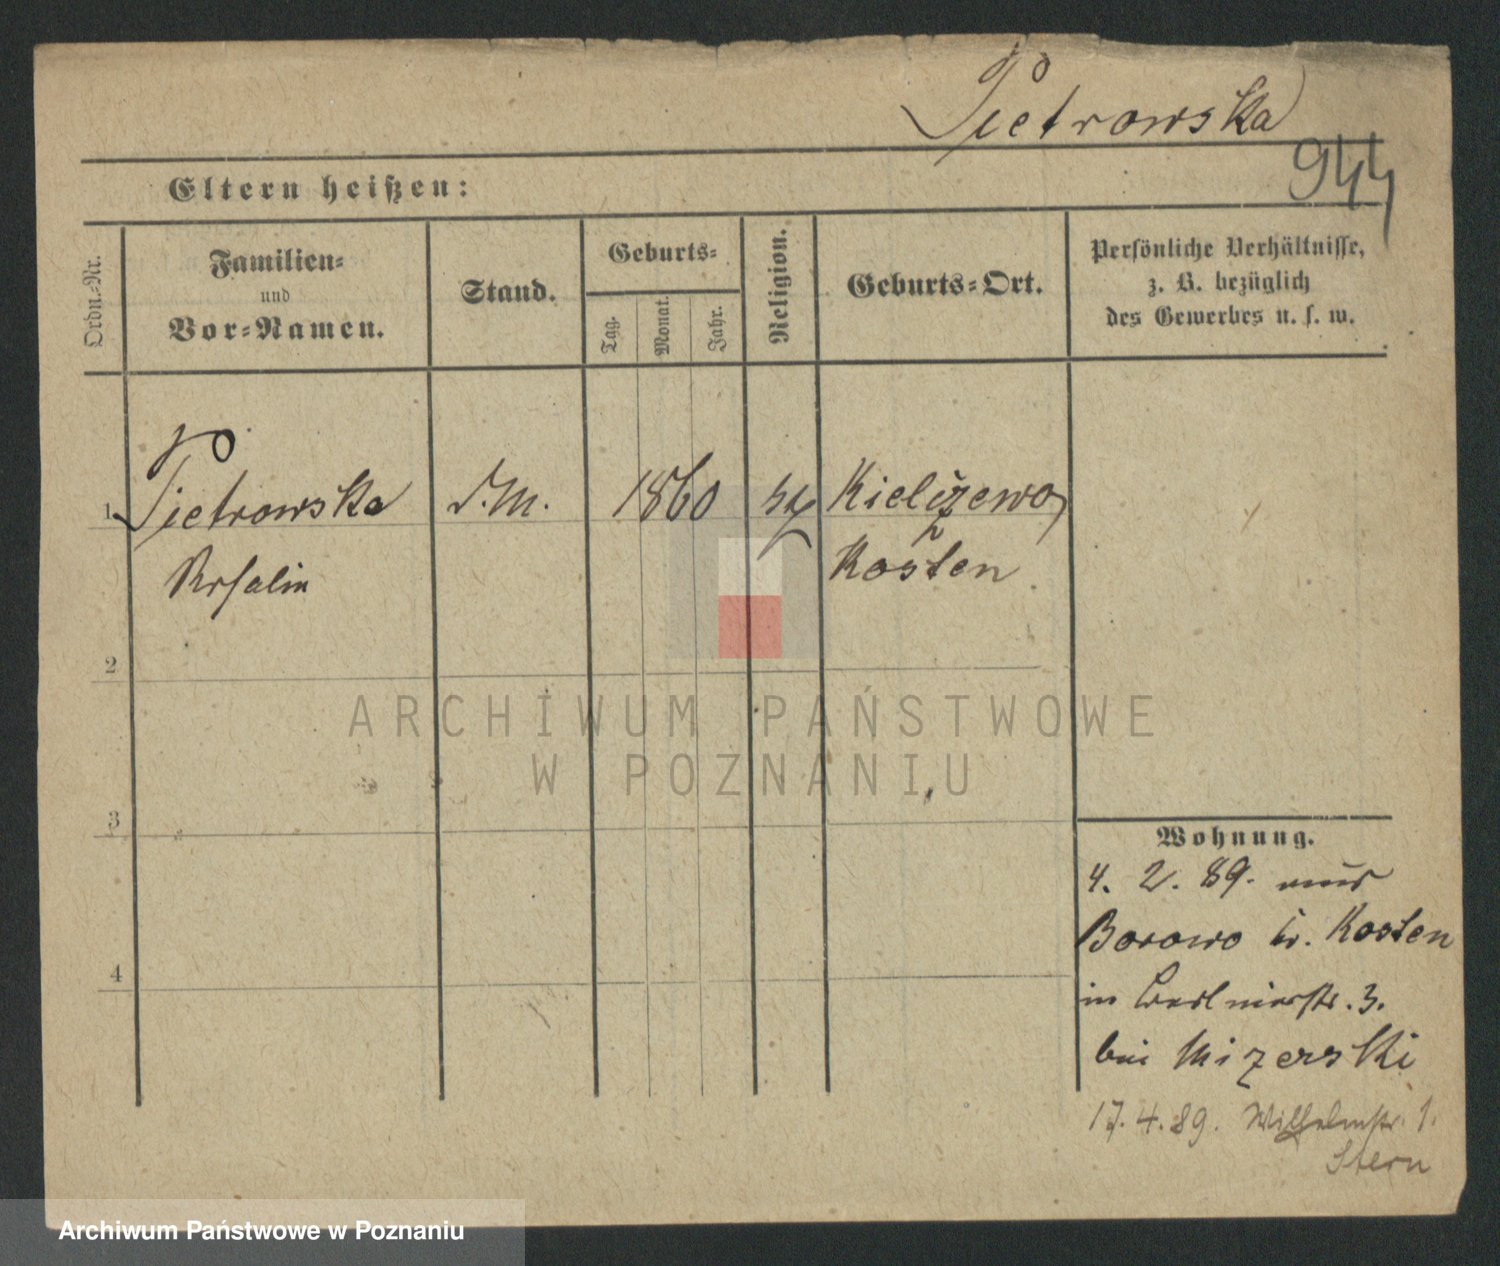 Pietrowska
944
Eltern heißen:
Ordn.-Nr.
Familien-
und
Vor-Namen.
Stand.
Geburts-
Tag.
Monat.
Jahr.
Religion.
Geburts-Ort.
Persönliche Verhältnisse,
z. B. bezüglich
des Gewerbes u. s. w.
1 Pietrowska D.M. 1860 Kielczewo,
Rosalin Kosten
2
3
4
ARCHIWUM PAŃSTWOWE
W POZNANIU
Wohnung.
4. 2. 89. aus
Borowo Kr. Kosten
in 3.
bei Mizerski
17. 4. 89. Wilhelmstr. 1.
Stern
Archiwum Państwowe w Poznaniu